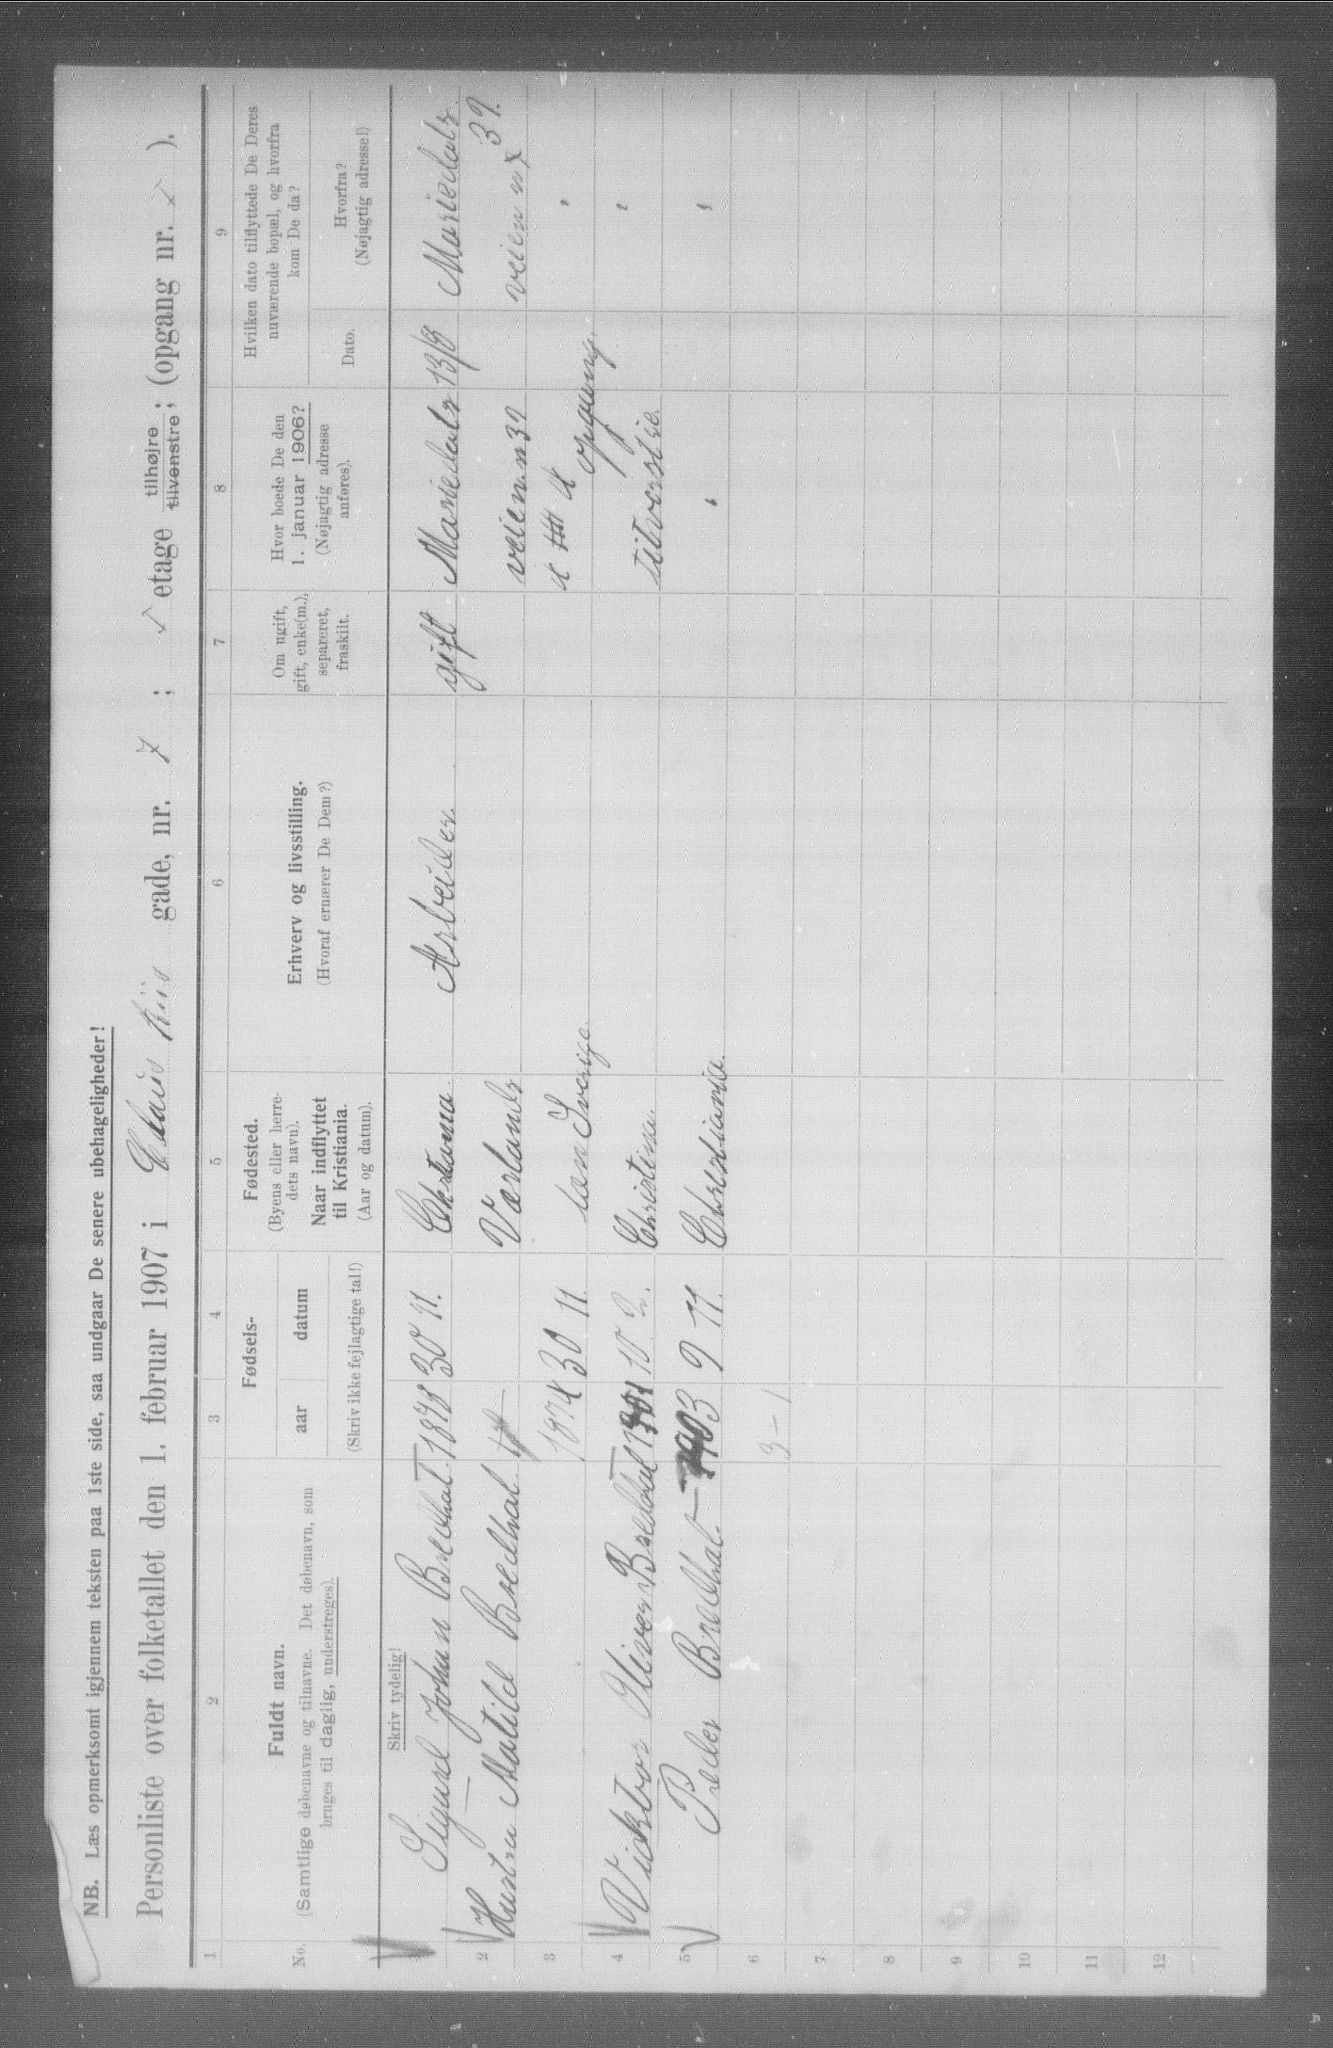 NB. Læs opmerksomt igjennem teksten paa 1ste side, saa undgaar De senere ubehageligheder!
Personliste over folketallet den 1. februar 1907 i Claus Riis gade, nr. 7 ; etage tilhøjre tilvenstre; (opgang nr. ).
1 2 3 4 5 6 7 8 9
No.
Fuldt navn.
(Samtlige døbenavne og tilnavne. Det døbenavn, som
bruges til daglig, understreges).
Fødsels-
aar datum
(Skriv ikke fejlagtige tal!)
Fødested.
(Byens eller herre-
dets navn).
Naar indflyttet
til Kristiania.
(Aar og datum).
Erhverv og livsstilling.
(Hvoraf ernærer De Dem?)
Om ugift,
gift, enke(m.),
separeret,
fraskilt.
Hvor boede De den
1. januar 1906?
(Nøjagtig adresse
anføres).
Hvilken dato tilflyttede De Deres
nuværende bopæl, og hvorfra
kom De da?
Dato.
Hvorfra?
(Nøjagtig adresse!)
Skriv tydelig!
Sigurd Johan Bredhal 1878 30 11. Arbeider gift Mariedals 13/8 Mariedals
2 Hustru Matild Bredhal Værlands veien n 39 veien n 39.
3 1874 30 11. læn Sverige opgang
4 Vicktor Oliver Bredhal 1901 10 2. Christiania.
5 Peder Bredhal 1903 9 11. Christiania.
6 3 - 1
7
8
9
10
11
12